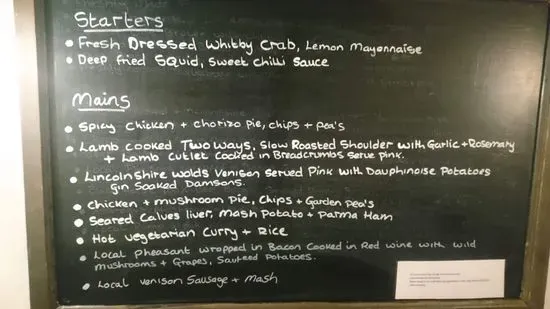 Starters
• Fresh Dressed Whitby Crab, Lemon Mayonnaise
• Deep fried Squid, Sweet Chilli Sauce
Mains
• Spicy Chicken + Chorizo Pie, chips + pea's
• Lamb cooked Two Ways, Slow Roasted Shoulder with Garlic + Rosemary
+ Lamb cutlet cooked in Breadcrumbs serve pink.
• Lincolnshire wolds Venison Served Pink with Dauphinoise Potatoes
Gin Soaked Damsons.
• Chicken + mushroom Pie, Chips + Garden Pea's
• Seared Calves liver, Mash Potato + Parma Ham
• Hot Vegetarian Curry + Rice
• Local pheasant wrapped in Bacon Cooked in Red wine with wild
mushrooms + Grapes, Sauteed Potatoes.
• Local venison Sausage + Mash